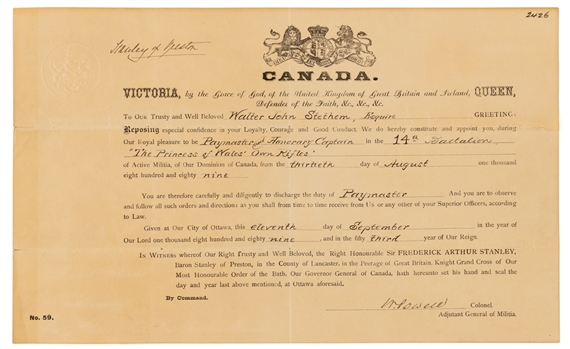 2426
Stanley of Preston
CANADA.
VICTORIA, by the Grace of God, of the United Kingdom of Great Britain and Ireland, QUEEN,
Defender of the Faith, &c., &c., &c.
To Our Trusty and Well Beloved Walter John Stethem, Esquire GREETING:
Reposing especial confidence in your Loyalty, Courage and Good Conduct, We do hereby constitute and appoint you, during
Our Royal pleasure to be Paymaster & Honorary Captain in the 14th Battalion,
"The Princess of Wales' Own Rifles"
of Active Militia, of our Dominion of Canada, from the thirtieth day of August one thousand
eight hundred and eighty nine
You are therefore carefully and diligently to discharge the duty of Paymaster And you are to observe
and follow all such orders and directions as you shall from time to time receive from Us or any other of your Superior Officers, according
to Law.
Given at Our City of Ottawa, this eleventh day of September in the year of
Our Lord one thousand eight hundred and eighty nine, and in the fifty third year of Our Reign.
In Witness whereof Our Right Trusty and Well Beloved, the Right Honourable Sir FREDERICK ARTHUR STANLEY,
Baron Stanley of Preston, in the County of Lancaster, in the Peerage of Great Britain, Knight Grand Cross of Our
Most Honourable Order of the Bath, Our Governor General of Canada, hath hereunto set his hand and seal the
day and year last above mentioned, at Ottawa aforesaid.
By Command.
W Powell Colonel.
Adjutant General of Militia.
No. 59.